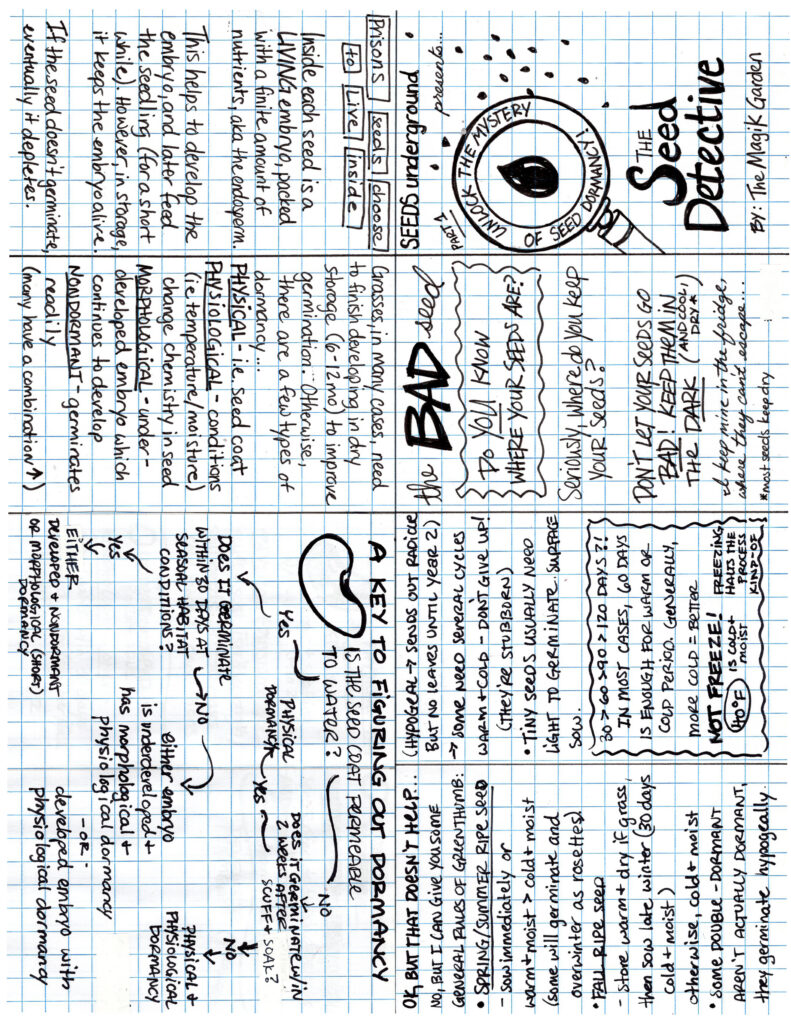 THE
Seed
Detective
BY: The Magik Garden
UNLOCK THE MYSTERY
OF SEED DORMANCY!
PART 1
presents...
SEEDS underground
Prisons seeds choose
to Live inside
Inside each seed is a
LIVING embryo, packed
with a finite amount of
nutrients, aka the endosperm.
This helps to develop the
embryo, and later feed
the seedling (for a short
while). However, in storage,
it keeps the embryo alive.
If the seed doesn't germinate,
eventually it depletes.
the BAD seed
Do YOU KNOW
WHERE YOUR SEEDS ARE?
Seriously, where do you keep
YOUR SEEDS?
DON'T LET YOUR SEEDS GO
BAD! KEEP THEM IN
THE DARK (AND COOL, DRY*)
I keep mine in the fridge,
where they can't escape...
*most seeds keep dry
Grasses, in many cases, need
to finish developing in dry
storage (6-12 mo) to improve
germination... Otherwise,
there are a few types of
dormancy...
PHYSICAL - i.e. seed coat
PHYSIOLOGICAL - conditions
(i.e. temperature/moisture)
change chemistry in seed
MORPHOLOGICAL - under-
developed embryo which
continues to develop
NONDORMANT - germinates
readily
(many have a combination ↑)
(HYPOGEAL → SENDS OUT RADICLE
BUT NO LEAVES UNTIL YEAR 2)
→ SOME NEED SEVERAL CYCLES
WARM + COLD - DON'T GIVE UP!
(THEY'RE STUBBORN)
• TINY SEEDS USUALLY NEED
LIGHT TO GERMINATE. SURFACE
SOW.
30 > 60 > 90 > 120 DAYS?!
IN MOST CASES, 60 DAYS
IS ENOUGH FOR WARM OR
COLD PERIOD. GENERALLY,
MORE COLD = BETTER
NOT FREEZE!
40°F IS COLD + MOIST
FREEZING
HALTS THE
PROCESS
KIND-OF
A KEY TO FIGURING OUT DORMANCY
IS THE SEED COAT PERMEABLE
TO WATER?
YES
NO
DOES IT GERMINATE
WITHIN 30 DAYS AT
SEASAL HABITAT
CONDITIONS?
YES
EITHER
DEVELOPED + NONDORMANT
OR MORPHOLOGICAL (SHORT)
DORMANCY
→ NO
Either embryo
is underdeveloped +
has morphological +
physiological dormancy
-OR-
developed embryo with
physiological dormancy
PHYSICAL
DORMANCY
YES
DOES IT GERMINATE W/IN
2 WEEKS AFTER
SCUFF + SOAK?
NO
PHYSICAL +
PHYSIOLOGICAL
DORMANCY
OK, BUT THAT DOESN'T HELP...
NO, BUT I CAN GIVE YOU SOME
GENERAL RULES OF GREEN THUMB:
• SPRING/SUMMER RIPE SEED
- sow immediately or
warm + moist > cold + moist
(some will germinate and
overwinter as rosettes)
• FALL RIPE SEED
- Store warm + dry if grass,
then sow late winter (30 days
cold + moist)
otherwise, cold + moist
• SOME DOUBLE-DORMANT
AREN'T ACTUALLY DORMANT,
they germinate hypogeally.